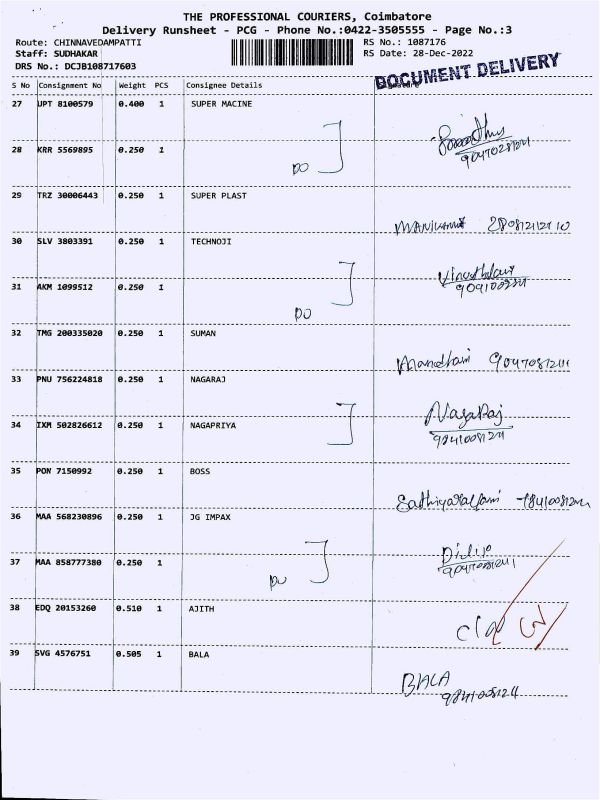 THE PROFESSIONAL COURIERS, Coimbatore
Delivery Runsheet - PCG - Phone No.:0422-3505555 - Page No.:3
Route: CHINNAVEDAMPATTI RS No.: 1087176
Staff: SUDHAKAR RS Date: 28-Dec-2022
DRS No.: DCJB108717603
DOCUMENT DELIVERY
S No Consignment No Weight PCS Consignee Details
27 UPT 8100579 0.400 1 SUPER MACINE
28 KRR 5569895 0.250 1
DO
29 TRZ 30006443 0.250 1 SUPER PLAST
30 SLV 3803391 0.250 1 TECHNOJI
31 AKM 1099512 0.250 1
DO
32 TMG 200335020 0.250 1 SUMAN
33 PNU 756224818 0.250 1 NAGARAJ
NagaRaj
34 IXM 502826612 0.250 1 NAGAPRIYA
35 PON 7150992 0.250 1 BOSS
36 MAA 568230896 0.250 1 JG IMPAX
37 MAA 858777380 0.250 1
DO
38 EDQ 20153260 0.510 1 AJITH
39 SVG 4576751 0.505 1 BALA
BALA